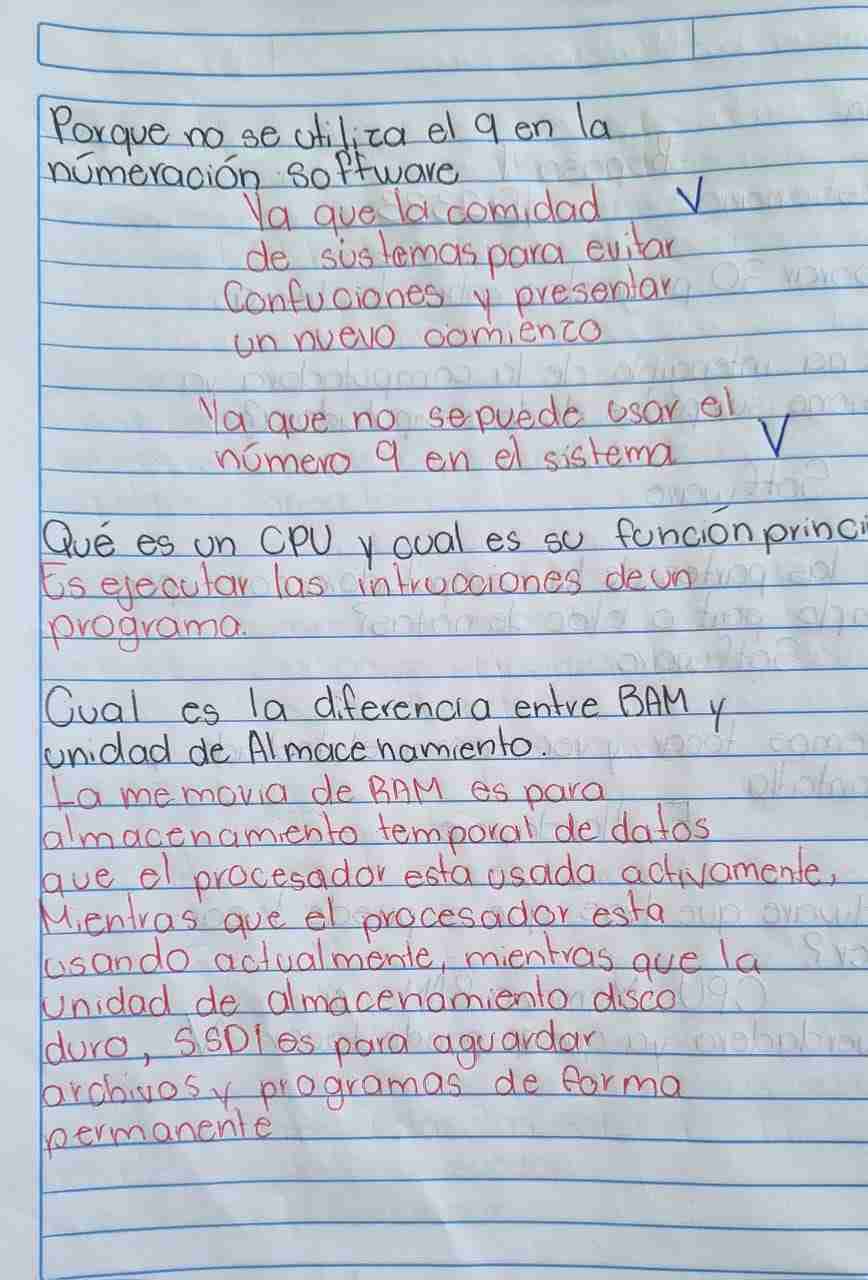 Porque no se utiliza el 9 en la
númeración software
Ya que la comidad V
de sistemas para evitar
Confuciones y presentar
un nuevo comienzo
Ya que no se puede usar el
número 9 en el sistema V
Qué es un CPU y cual es su función princi
Es ejecutar las intrucciones de un
programa.
Cual es la diferencia entre RAM y
unidad de Almacenamiento.
La memoria de RAM es para
almacenamiento temporal de datos
que el procesador esta usada activamente,
Mientras que el procesador esta
usando actualmente, mientras que la
unidad de almacenamiento disco
duro, SSD1 es para aguardar
archivos y programas de forma
permanente